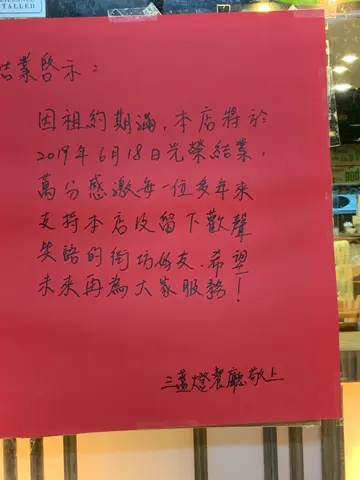 TALLED
結業啓示：
因租約期滿，本店將於
2019年6月18日光榮結業，
萬分感激每一位多年來
支持本店及留下歡聲
笑語的街坊好友，希望
未來再為大家服務！
三盞燈餐廳敬上